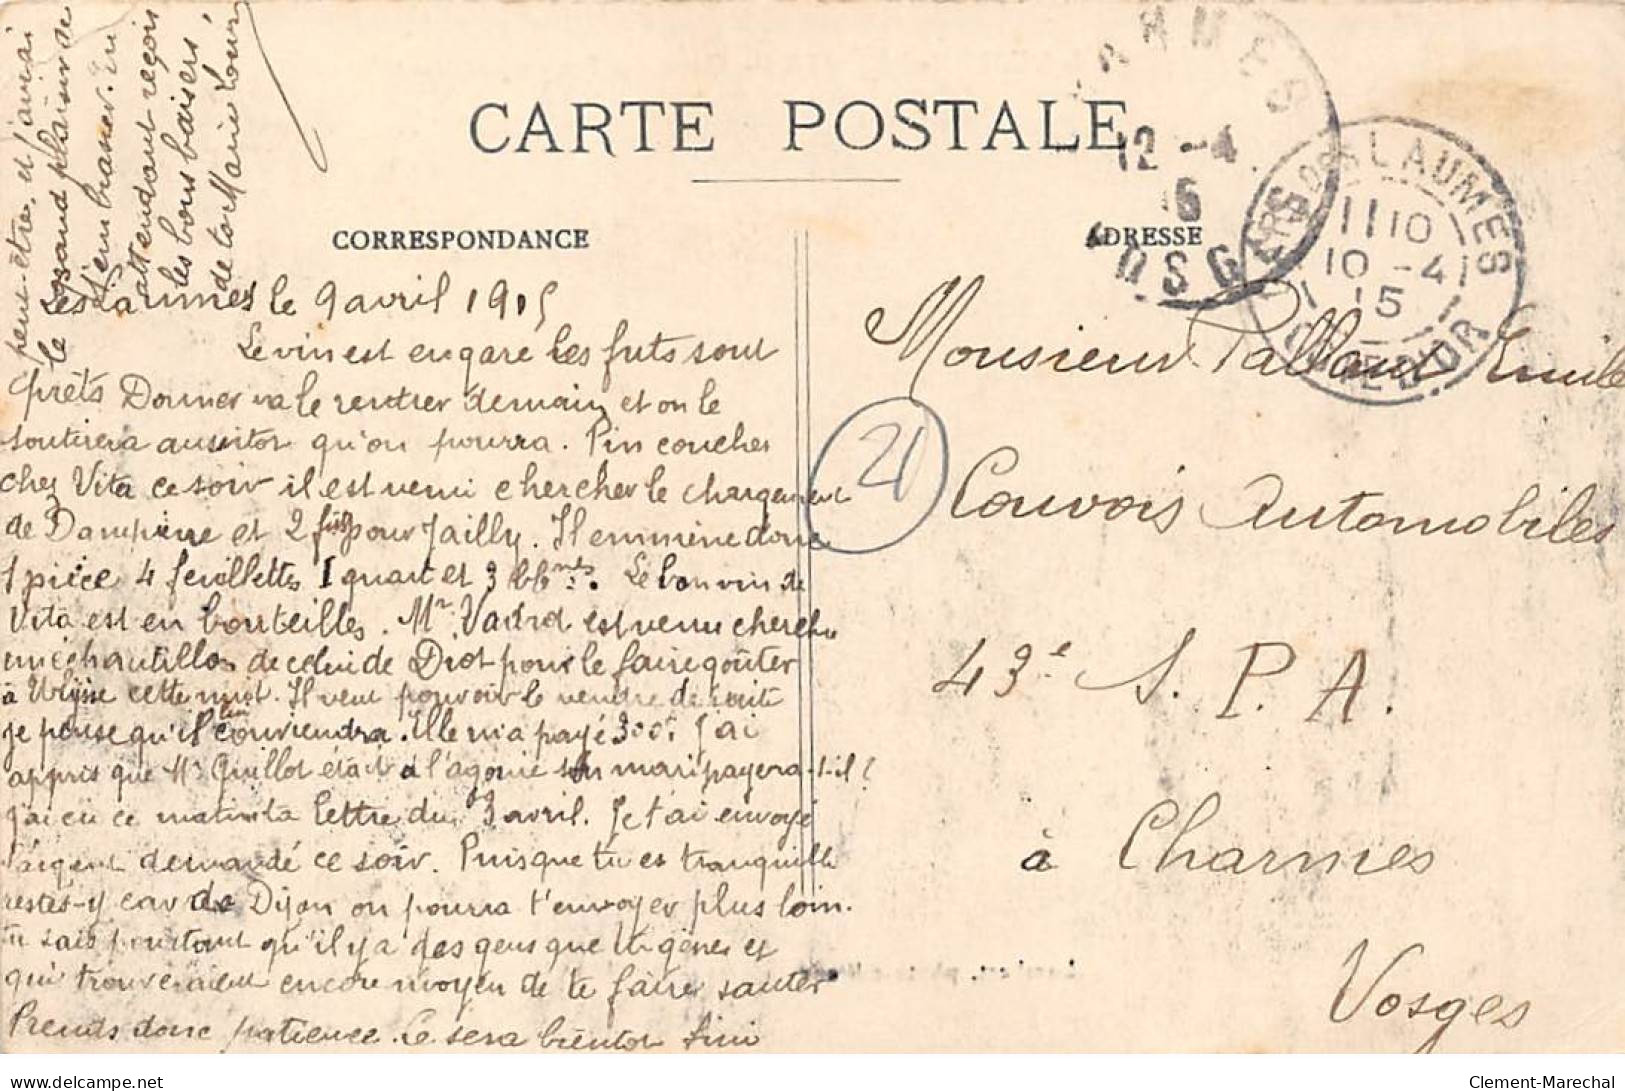 CARTE POSTALE
CORRESPONDANCE
ADRESSE
Les Laumes le 9 avril 1915
Le vin est en gare les futs sont
prêts Donner va le rentrer demain et on le
soutirera aussitot qu'on pourra. Pin coucher
chez Vita ce soir il est venu chercher le chargement
de Dampierre et 2 fûts pour Jailly. Il emmène donc
1 pièce 4 feuillettes 1 quart et 3 bbnes. Le bon vin de
Vita est en bouteilles. Mr. Vadrot est venu chercher
un échantillon de celui de Drot pour le faire goûter
à Ulysse cette nuit. Il veut pouvoir le vendre de suite
je pense qu'il lui conviendra. Elle m'a payé 300f. J'ai
appris que Me Guillot était à l'agonie son mari payera-t-il?
J'ai eu ce matin ta lettre du 3 avril. Je t'ai envoyé
l'argent demandé ce soir. Puisque tu es tranquille
restes-y car de Dijon on pourra t'envoyer plus loin.
tu sais pourtant qu'il y a des gens que tu gênes et
qui trouveraient encore moyen de te faire sauter
Prends donc patience. Ce sera bientot fini
peut-être, et j'aurai
le grand plaisir de
t'embrasser. En
attendant reçois
les bons baisers
de ton Marie Louise
Monsieur Pallaut Emile
Convois Automobiles
43e S. P. A.
à Charmes
Vosges
21
CHARMES
12 -4
15
VOSGES
LES LAUMES
1110
10 -4
15
COTE D'OR
Clement-Marechal
www.delcampe.net